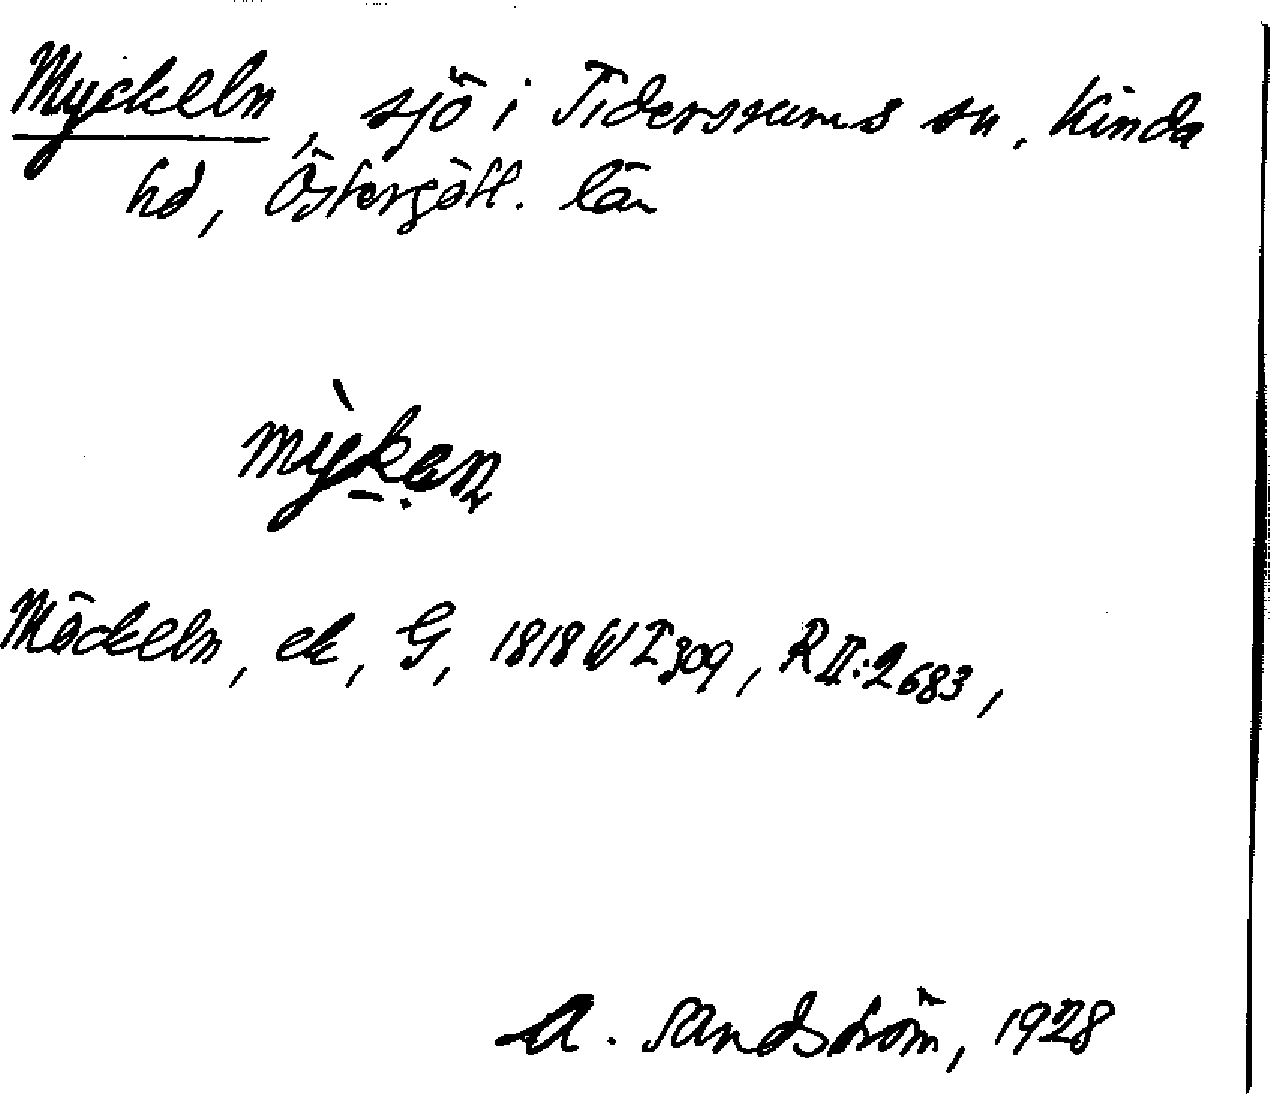 Myckeln, sjö i Tidersrums sn, Kinda
hd, Östergötl. län
mỳkan
Möckeln, ek, G, 1818 W I 309, R II:2 683,
A. Sandström, 1928